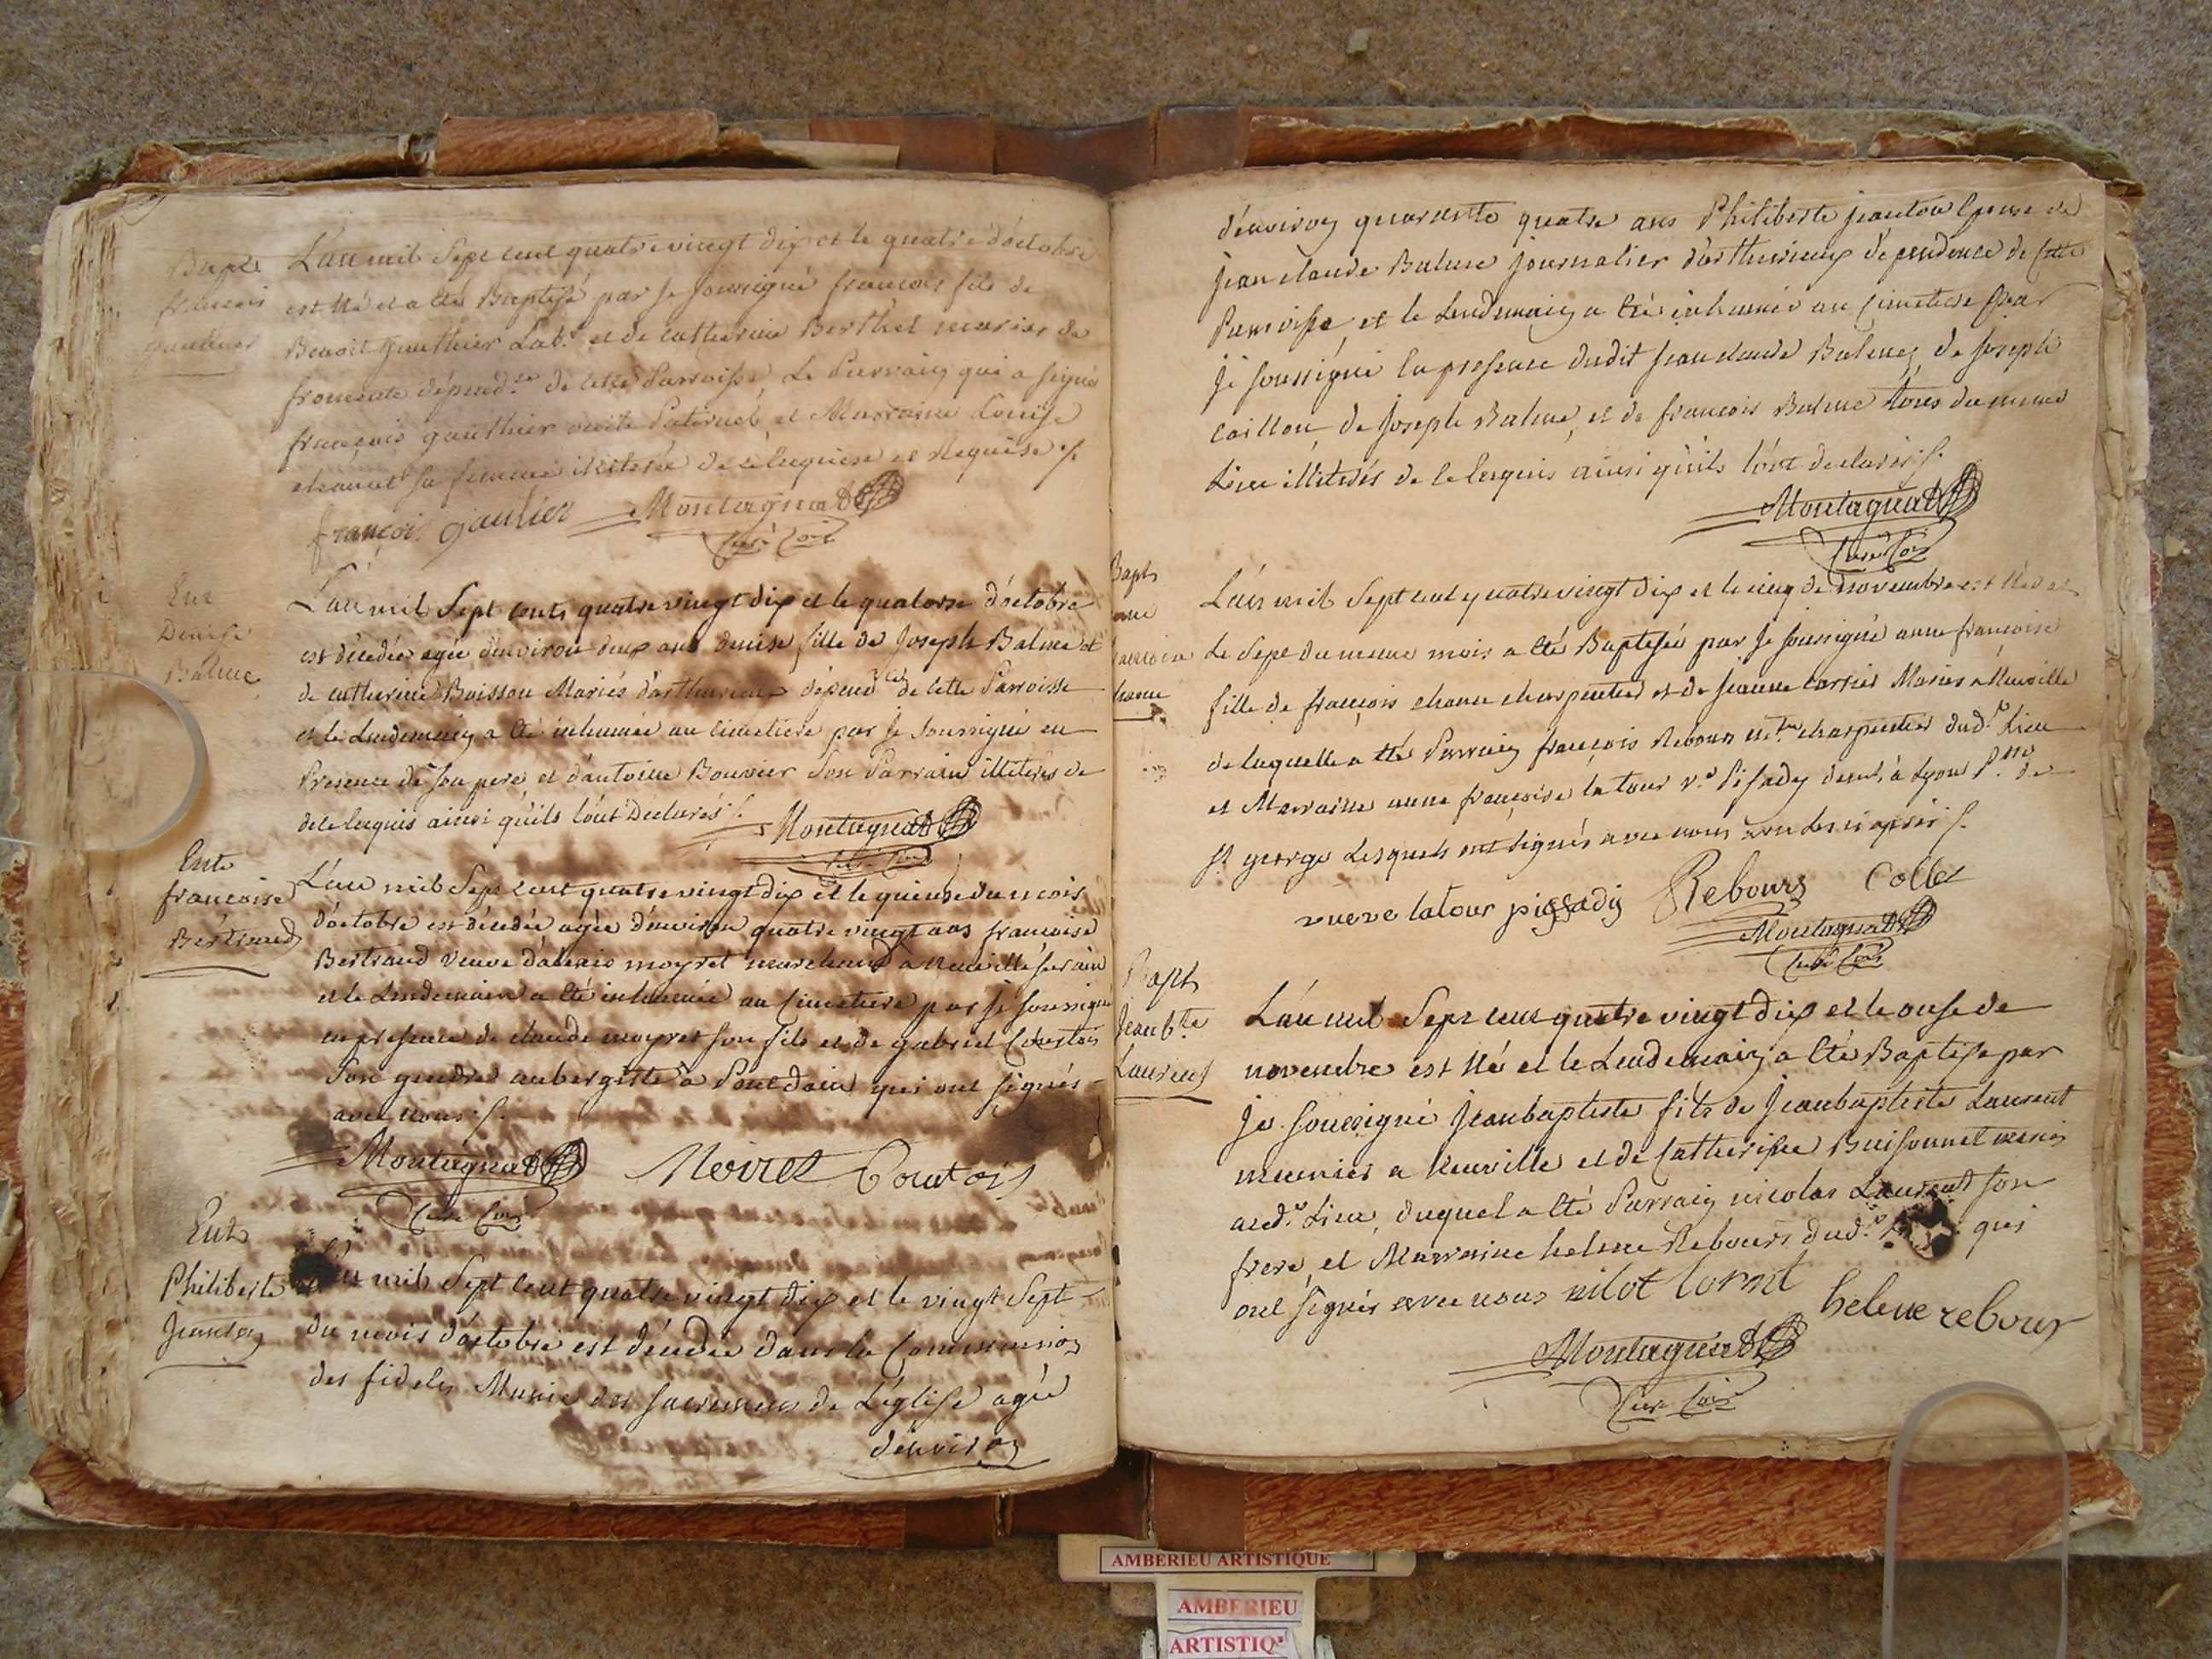 Bapte
francois
gauthier
L'an mil Sept cent quatre vingt dix et le quatre d'octobre
est Né et a été Baptisé par Je soussigné francois fils de
Benoit gauthier Lab.r et de catherine Berthet mariés de
fromente dépend.ce de cette Parroisse, Le Parrain qui a signé
françois gauthier oncle Paternel et Marraine Louise
chanel sa femme illiterée de ce enquise et Requise /.
françois gautier Montagnat
Curé Coin
Ent
Denise
Balme
L'an mil Sept cents quatre vingt dix et le quatorse d'octobre
est décedée agée d'environ deux ans denise fille de Joseph Balme et
de catherine Boisson Mariés d'arthurieux dépend.ce de cette Parroisse
et le Lendemain a été inhumée au cimetiere par Je soussigné en
Presence de son pere, et d'antoine Bouvier son Parrain illiterés de
de ce enquis ainsi qu'ils l'ont Declarés /. Montagnat
Curé Coin
Ent
francoise
Bertrand
L'an mil Sept cent quatre vingt dix et le quinse du mois
d'octobre est décedée agée d'environ quatre vingt ans francoise
Bertrand Veuve d' moyret marchand a Neuville sur ain
et le Lendemain a été inhumée au Cimetiere par Je soussigné
en presence de claude moyret son fils et de gabriel Courtois
son gendre aubergiste a Pont dain qui ont signés
avec nous /.
Montagnat Moiret Coutois
Curé Coin
Ent
Philiberte
Jeanton
L'an mil Sept cent quatre vingt dix et le vingt Sept
du mois d'octobre est décedée dans la Communion
des fideles Munie des sacremens de L'église agée
d'environ
d'environ quarante quatre ans Philiberte jeanton Epouse de
Jean claude Balme journalier d'arthurieux dépendence de Cette
Parroisse, et le Lendemain a été inhumée au Cimetiere par
Je soussigné En presence dudit jean claude Balme, de Joseph
caillon, de Joseph Balme, et de francois Balme tous du meme
Lieu illiterés de ce Enquis ainsi qu'ils l'ont declarés /.
Montagnat
Curé Coin
Bapt
anne
francoise
channe
L'an mil Sept cent quatre vingt dix et le cinq de novembre est Née et
Le Sept du meme mois a été Baptisée par Je soussigné anne francoise
fille de françois channe charpentier et de jeanne Mariés a Neuville
de laquelle a été Parrain françois Rebours m.tre charpentier dud.t Lieu
et Marraine anne francoise la tour v.e Pisady demt. à Lyon P.sse de
St george Lesquels ont signés avec nous /.
vueve latour pissadiy Rebours Collet
Montagnat
Curé Coin
Bapt
Jean b.te
Laurent
L'an mil Sept cent quatre vingt dix et le onse de
novembre est Né et le Lendemain a été Baptisé par
Je soussigné Jeanbaptiste fils de Jeanbaptiste Laurent
meunier a Neuville et de Catherine Buisonnet mariés
aud.t Lieu, duquel a été Parrain nicolas Laurent son
frere, et Marraine helene Rebours dud.t qui
ont signés avec nous nilot lorant helene rebour
Montagnat
Curé Coin
AMBERIEU ARTISTIQUE
AMBERIEU
ARTISTIQ